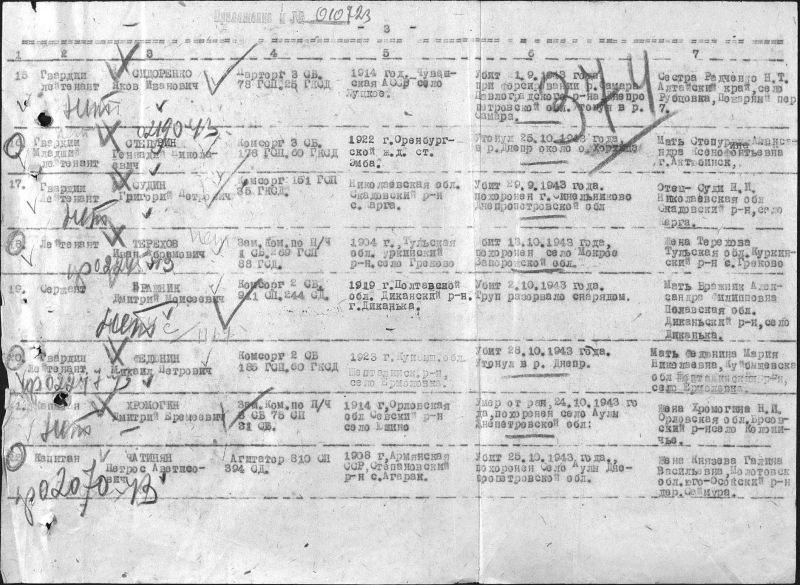 010723
- 3 -
1 2 3 4 5 6 7
15 Гвардии лейтенант СИДОРЕНКО Яков Иванович Парторг 3 СБ, 78 ГСП, 25 ГКСД 1914 год. Чувашская АССР село Луцкое. Убит 1.9.1943 года при форсировании р. Самара Павлоградского р-на Днепропетровской обл. утонул в р. Самара. Сестра Радченко Н.Т. Алтайский край, село Рубцовка, Пожарный пер 7.
нет
374
021907-43
Гвардии Младший лейтенант СТЕПУРИН Геннадий Николаевич Комсорг 3 СБ, 176 ГСП, 60 ГКСД 1922 г. Оренбургской ж.д. ст. Эмба. Утонул 25.10.1943 года, в р. Днепр около о. Хортица Мать Степурина Александра Ксенофонтьевна г. Актюбинск,
17. Гвардии лейтенант СУДИН Григорий Петрович Комсорг 151 ГСП 35 ГКСД. Николаевская обл. Скадовский р-н с. Царга. Убит 29.9.1943 года. похоронен г. Синельниково Днепропетровской обл Отец- Судин Н.И. Николаевская обл Скадовский р-н, село Царга.
нет
18 Лейтенант ТЕРЕХОВ Иван Абрамович Зам. Ком. по П/Ч 1 СБ, 269 ГСП 88 ГСД. 1904 г., Тульская обл. Куркинский р-н, село Греково Убит 13.10.1943 года, похоронен село Мокрое Запорожской обл. Жена Терехова Тульская обл. Куркинский р-н с. Греково
19. Сержант БРАЖНИК Дмитрий Моисеевич Комсорг 2 СБ, 911 СП, 244 СД. 1919 г. Полтавской обл. Диканский р-н, г. Диканька. Убит 2.10.1943 года. Труп разорвало снарядом. Мать Бражник Александра Филипповна Полавская обл. Диканьский р-н, село Диканька.
нет
20. Гвардии Лейтенант ФЕДЮНИН Михаил Петрович Комсорг 2 СБ 185 ГСП, 60 ГКСД 1923 г. Куйбыш. обл. село Ермоловка. Убит 28.10.1943 года. Утонул в р. Днепр. Мать Федюнина Мария Николаевна, Куйбышевская обл село Ермоловка.
Капитан ХРОМОГИН Дмитрий Еремеевич Зам. Ком. по П/Ч 3 СБ 75 СП 31 СБ. 1914 г, Орловская обл Севский р-н село Юшино Умер от ран, 24.10.1943 года, похоронен село Аулы Днепетровской обл: Жена Хромогина Н.И. Орловская обл. р-н село
нет
22 Капитан ЧАТИНЯН Петрос Аветисович Агитатор 810 СП 394 СД. 1908 г, Армянская ССР, Степановский р-н с. Агарак. Убит 25.10.1943 года., похоронен Село Аулы Днепропетровской обл. Жена Князева Галина Васильевна, Молотовская обл. юго-Осойский р-н дер. Саймура.
02070-43